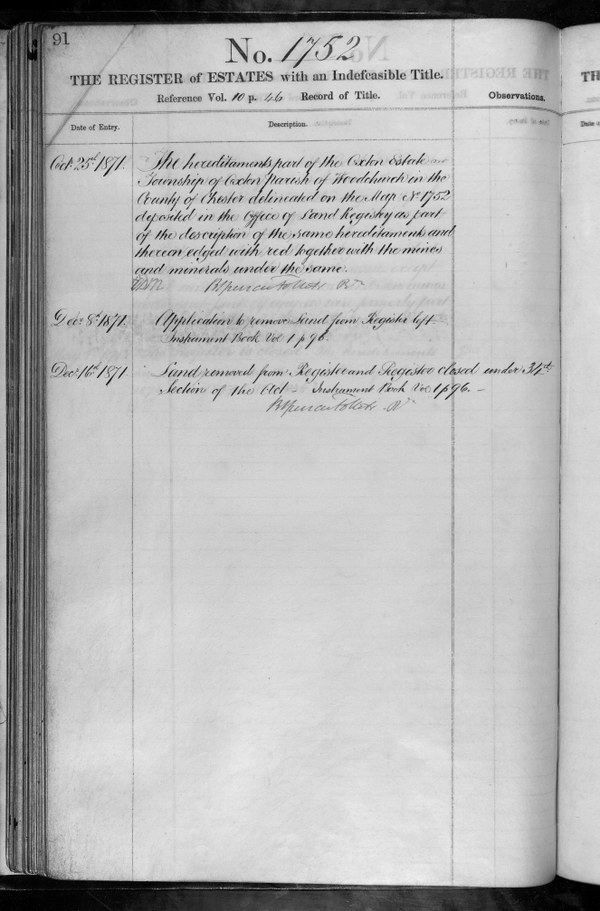 91
No. 1752
THE REGISTER of ESTATES with an Indefeasible Title.
Reference Vol. 10 p. 46 Record of Title.
Observations.
Date of Entry.
Description.
Octr. 25th 1871.
The hereditaments part of the Oxton Estate
Township of Oxton Parish of Woodchurch in the
County of Chester delineated on the Map No 1752
deposited in the Office of Land Registry as part
of the description of the same hereditaments and
thereon edged with red together with the mines
and minerals under the same.
Decr 8th 1871.
Application to remove Land from Register left
Instrument Book Vol 1 p 96.
Decr 16th 1871
Land removed from Register and Register closed under 34th
Section of the Act Instrument Book Vol 1 p 96. –
TH